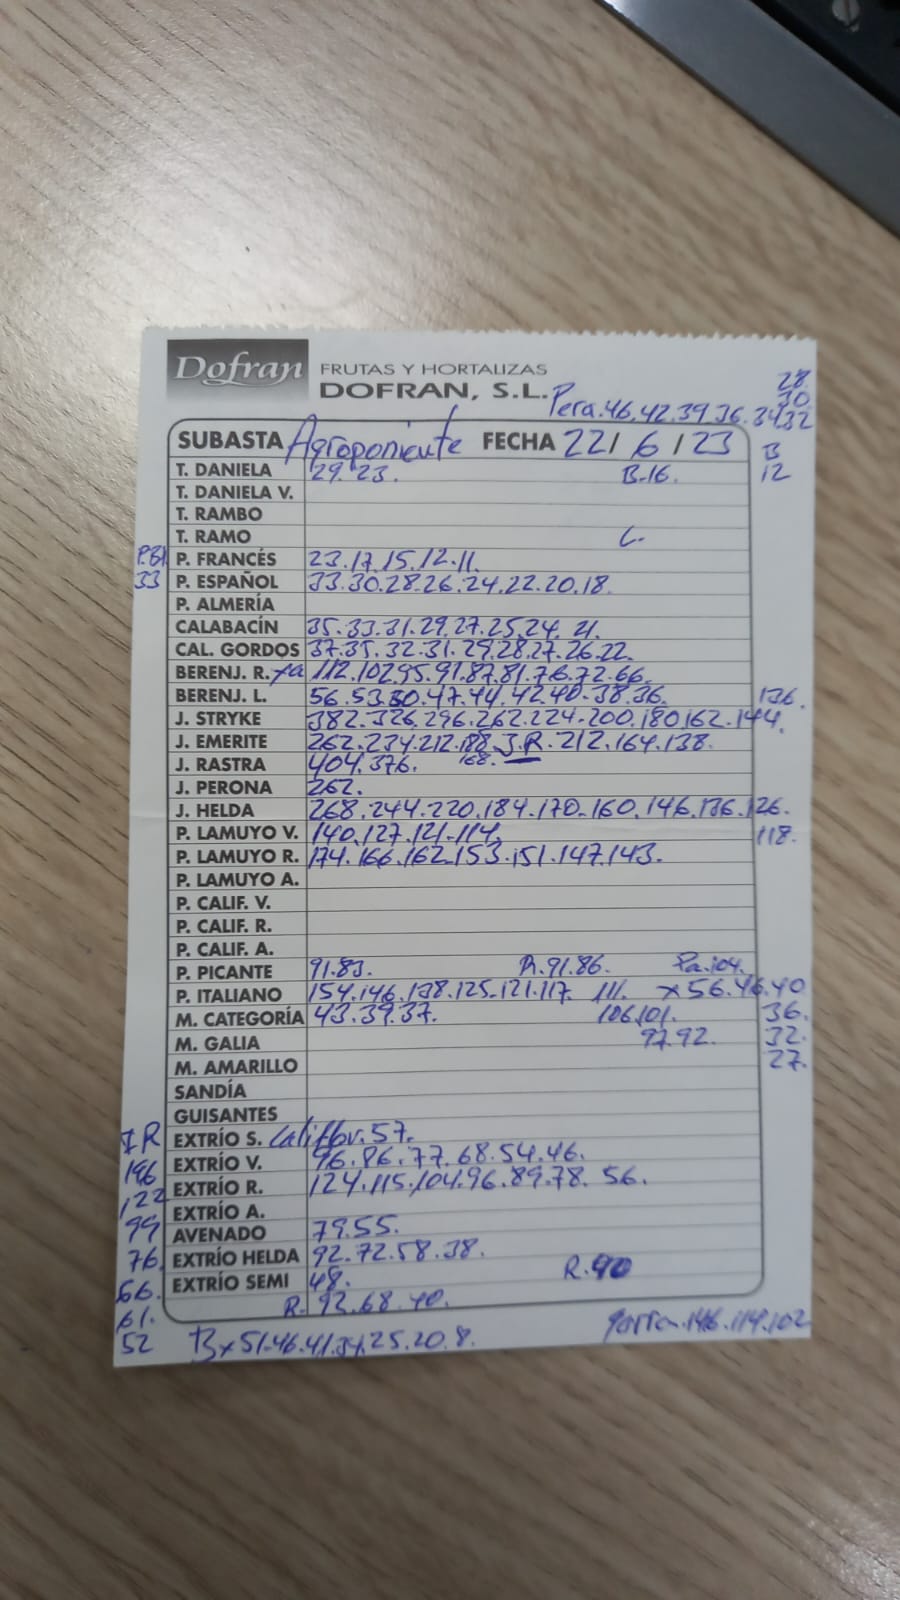 Dofran FRUTAS Y HORTALIZAS
DOFRAN, S.L. Pera.46.42.39.36.34.32
28.
30
SUBASTA Agroponiente FECHA 22/6/23 B
T. DANIELA 29.23. B.16. 12
T. DANIELA V.
T. RAMBO
T. RAMO L.
P. FRANCÉS 23.17.15.12.11.
33 P. ESPAÑOL 33.30.28.26.24.22.20.18.
P. ALMERÍA
CALABACÍN 35.33.31.29.27.25.24.21.
CAL. GORDOS 37.35.32.31.29.28.27.26.22.
BERENJ. R. 112.102.95.91.87.81.76.72.66.
BERENJ. L. 56.53.50.47.44.42.40.38.36. 136.
J. STRYKE 382.326.296.262.224.200.180.162.144.
J. EMERITE 262.234.212.188. J.R. 212.164.138.
J. RASTRA 404.376. 168.
J. PERONA 262.
J. HELDA 268.244.220.184.170.160.146.136.126.
P. LAMUYO V. 140.127.121.114. 118.
P. LAMUYO R. 174.166.162.153.151.147.143.
P. LAMUYO A.
P. CALIF. V.
P. CALIF. R.
P. CALIF. A.
P. PICANTE 91.83. R.91.86. Pa.104.
P. ITALIANO 154.146.138.125.121.117. 111. x56.46.40
M. CATEGORÍA 43.39.37. 106.101. 36.
M. GALIA 97.92. 32.
M. AMARILLO 27.
SANDÍA
GUISANTES
IR EXTRÍO S. Califor.57.
146 EXTRÍO V. 96.86.77.68.54.46.
122 EXTRÍO R. 124.115.104.96.89.78.56.
99 EXTRÍO A.
AVENADO 79.55.
76. EXTRÍO HELDA 92.72.58.38.
66. EXTRÍO SEMI 48. R.90
61. R. 92.68.40.
52 Bx51.46.41.34.25.20.8. garra.146.114.102